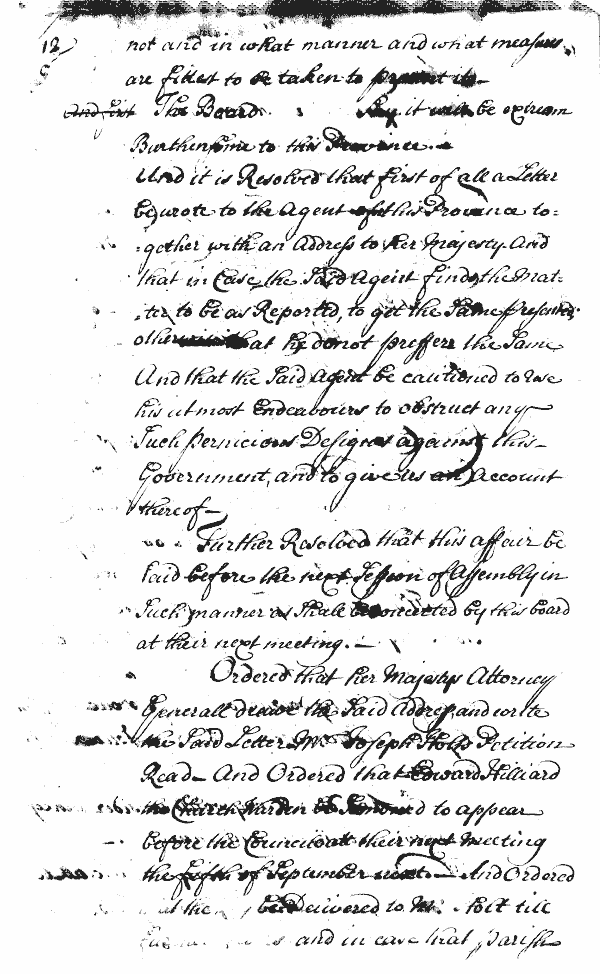 12
not and in what manner and what measures
are fittest to be taken to prevent it
And first The Board Say it will be extream
Burthensome to this Province.
And it is Resolved that first of all a Letter
be wrote to the Agent of this Province to=
=gether with an Address to her Majesty And
that in Case the Said Agent finds the Mat=
=ter to be as Reported, to get the Same presented,
otherwise that he do not preffere the Same
And that the Said Agent be cautioned to use
his utmost Endeavours to obstruct any
Such pernicious Designes against this
Government, and to give us an Account
thereof
Further Resolved that this affair be
laid before the next Session of Assembly in
Such manner as Shall be concerted by this board
at their next meeting.
Ordered that her Majestys Attorney
Generall drawe the Said Address and write
the Said Letter Mr. Joseph Holts Petition
Read And Ordered that Edward Hilliard
the Church Warden be Summoned to appear
before the Councill att their next Meeting
the fifth of September next And Ordered
the be Delivered to Mr. Holt till
and in case that parish